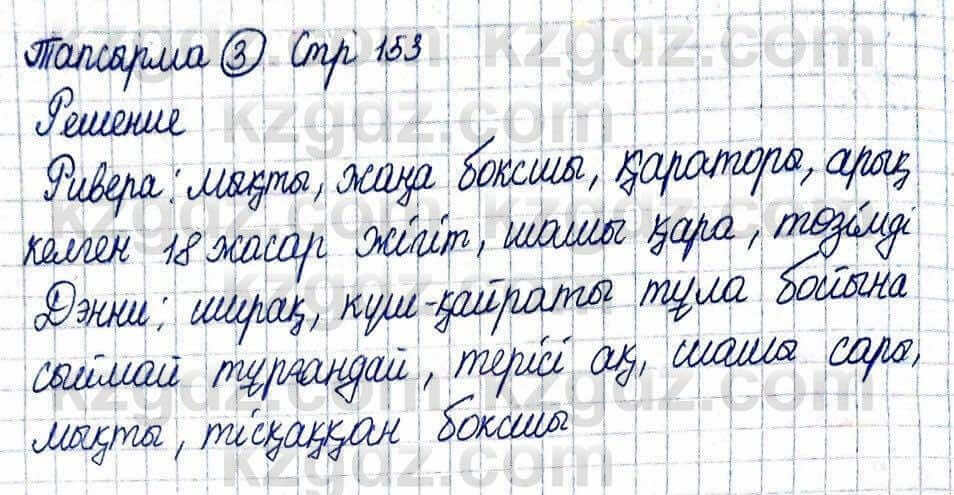 Тапсырма ③ Стр 153
Решение
Ривера: мықты, жаңа боксшы, қараторы, арық
келген 18 жасар жігіт, шашы қара, төзімді
Дэнни: ширақ, күш-қайраты тұла бойына
сыймай тұрғандай, терісі ақ, шашы сары,
мықты, тісқаққан боксшы
kzgdz.com